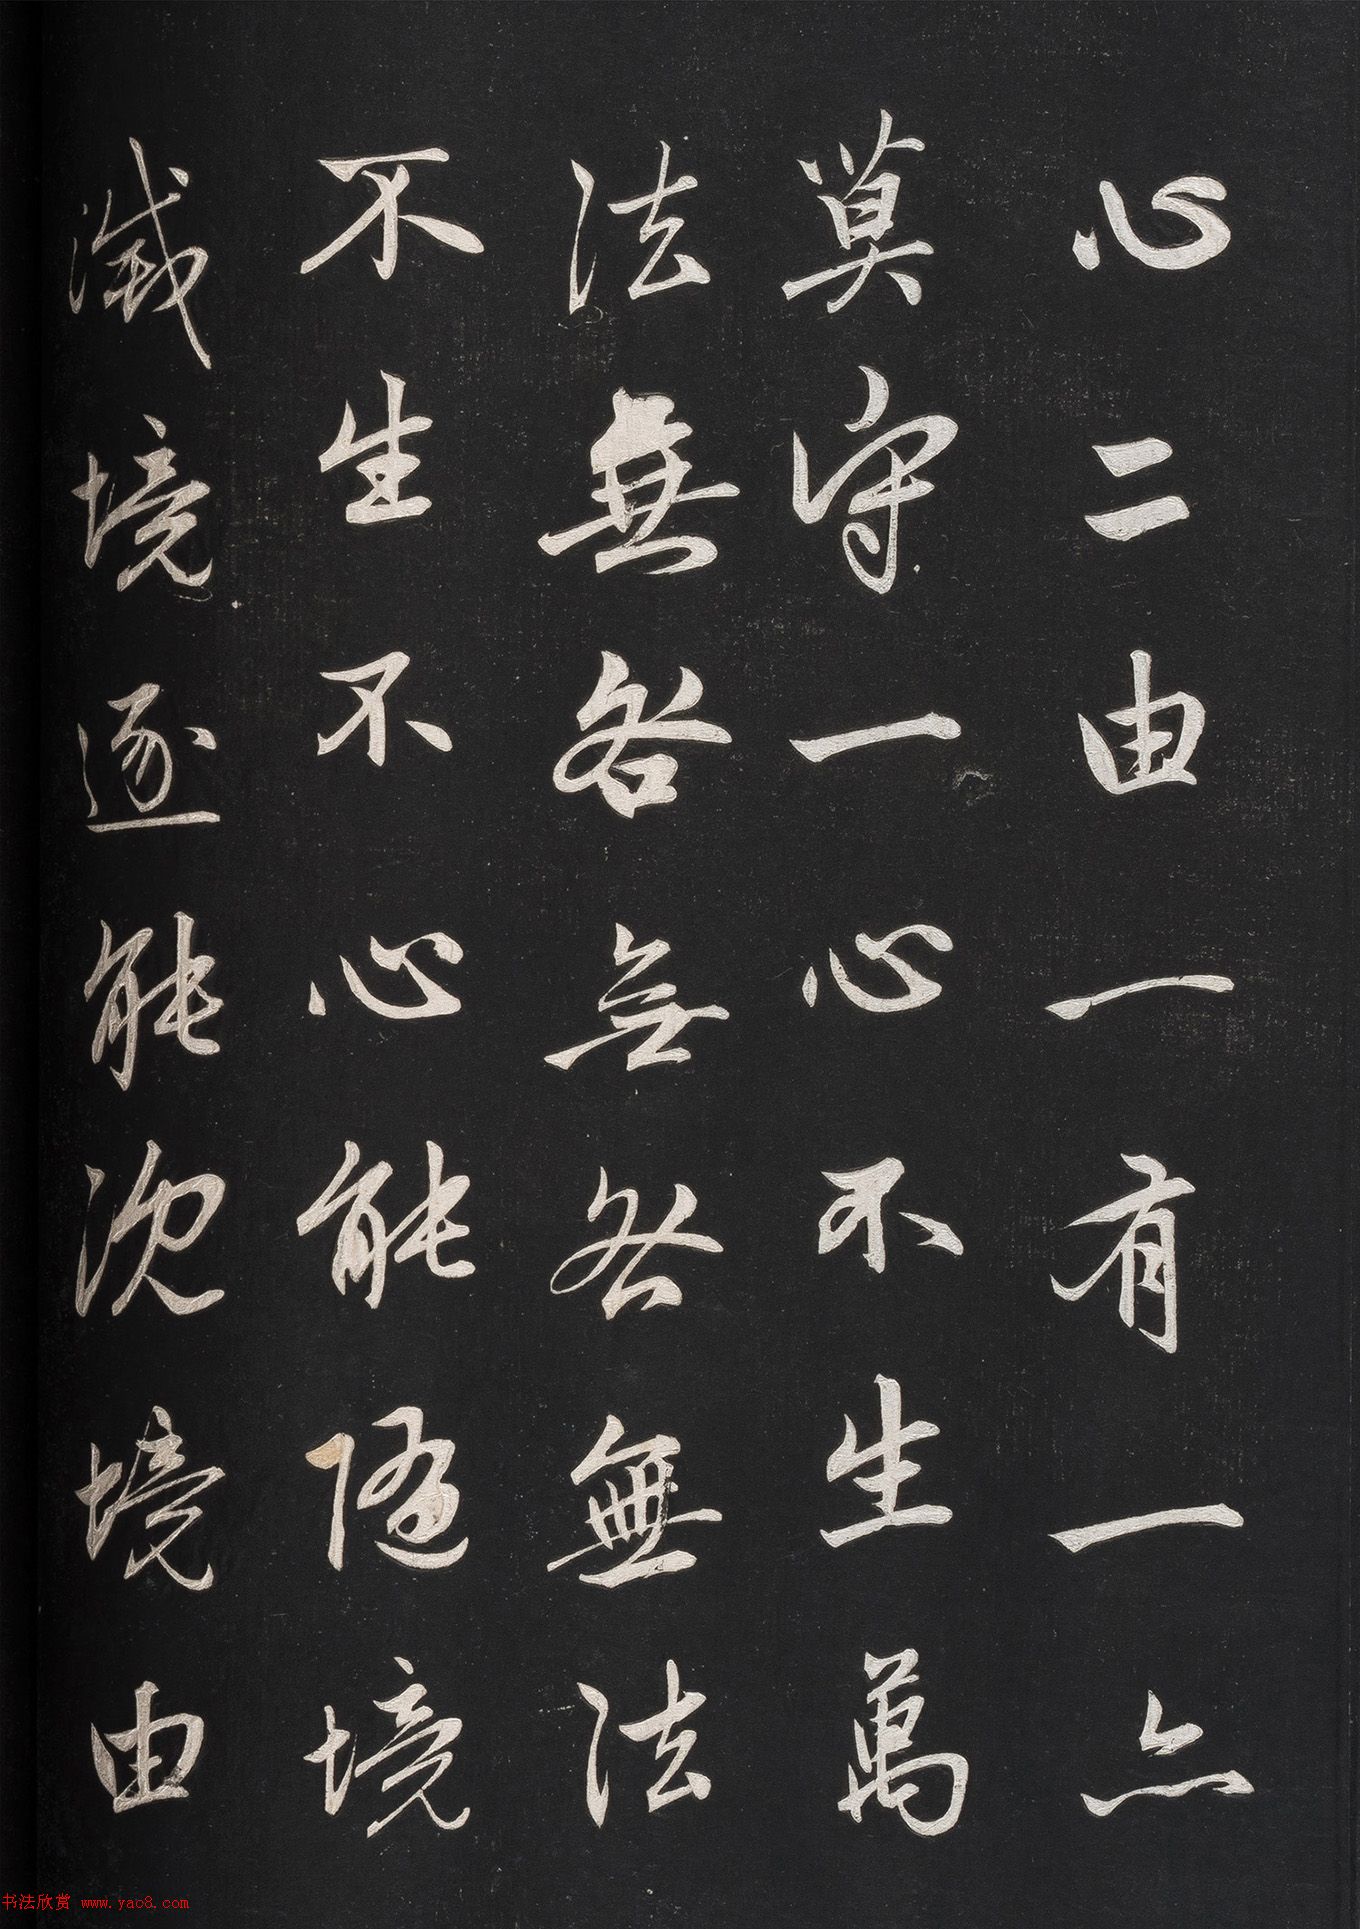 心二由一有一亦
莫守一心不生萬
法無咎無咎無法
不生不心能随境
滅境逐能沈境由
书法欣赏 www.yac8.com